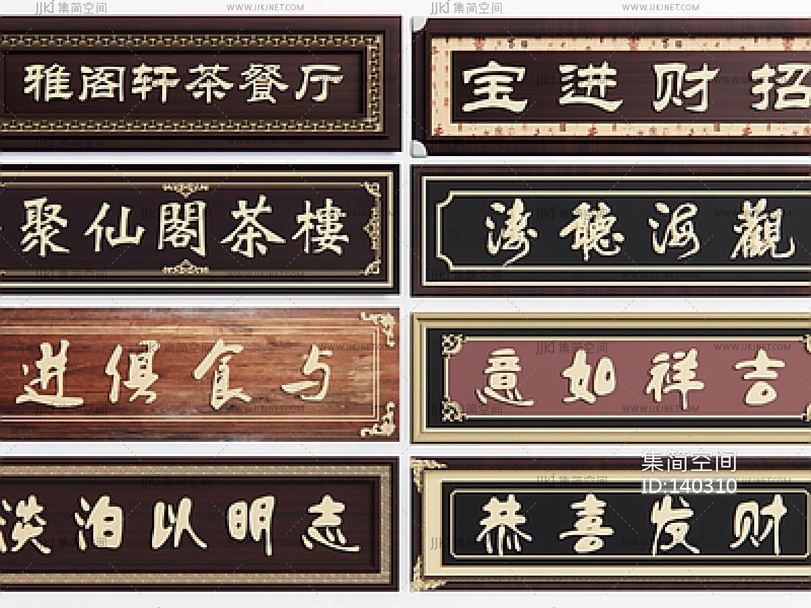 集简空间 WWW.JJKJNET.COM
雅阁轩茶餐厅
宝进财招
聚仙閣茶樓
涛聽海觀
进俱食与
意如祥吉
淡泊以明志
恭喜发财
集简空间
ID:140310